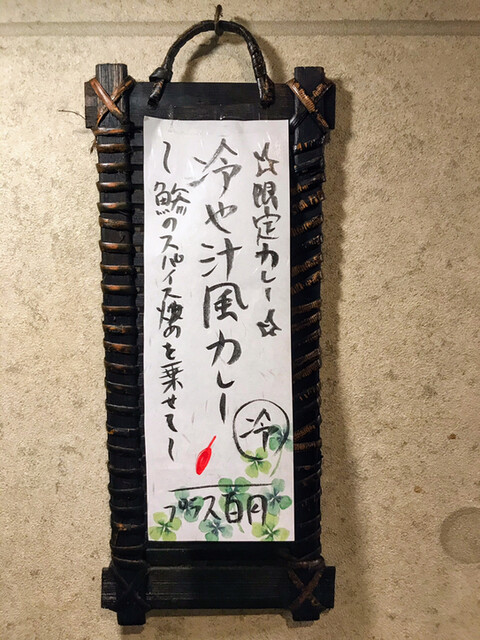 ☆限定カレー☆
冷や汁風カレー
冷
〜鯵のスパイス焼のを乗せて〜
プラス百円